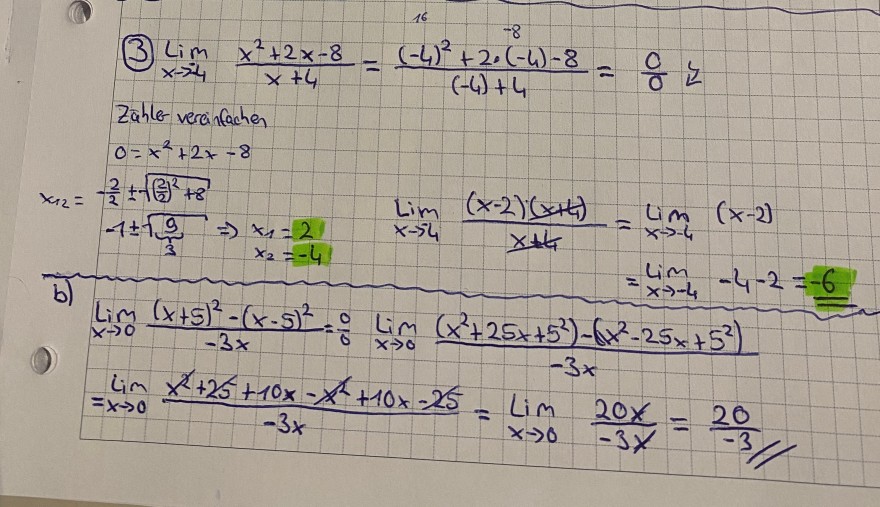 16 -8
③ Lim x→-4 (x²+2x-8)/(x+4) = ((-4)²+2·(-4)-8)/((-4)+4) = 0/0 ↯
Zähler vereinfachen
0=x²+2x-8
x₁₂ = -2/2 ± √((2/2)²+8)
-1±√9 ⇒ x₁ = 2
3 x₂ = -4
Lim x→-4 ((x-2)·(x+4))/(x+4) = Lim x→-4 (x-2)
= Lim x→-4 -4-2 = -6
b)
Lim x→0 ((x+5)²-(x-5)²)/(-3x) = 0/0 Lim x→0 ((x²+25x+5²)-(x²-25x+5²))/(-3x)
= Lim x→0 (x²+25+10x-x²+10x-25)/(-3x) = Lim x→0 20x/-3x = 20/-3